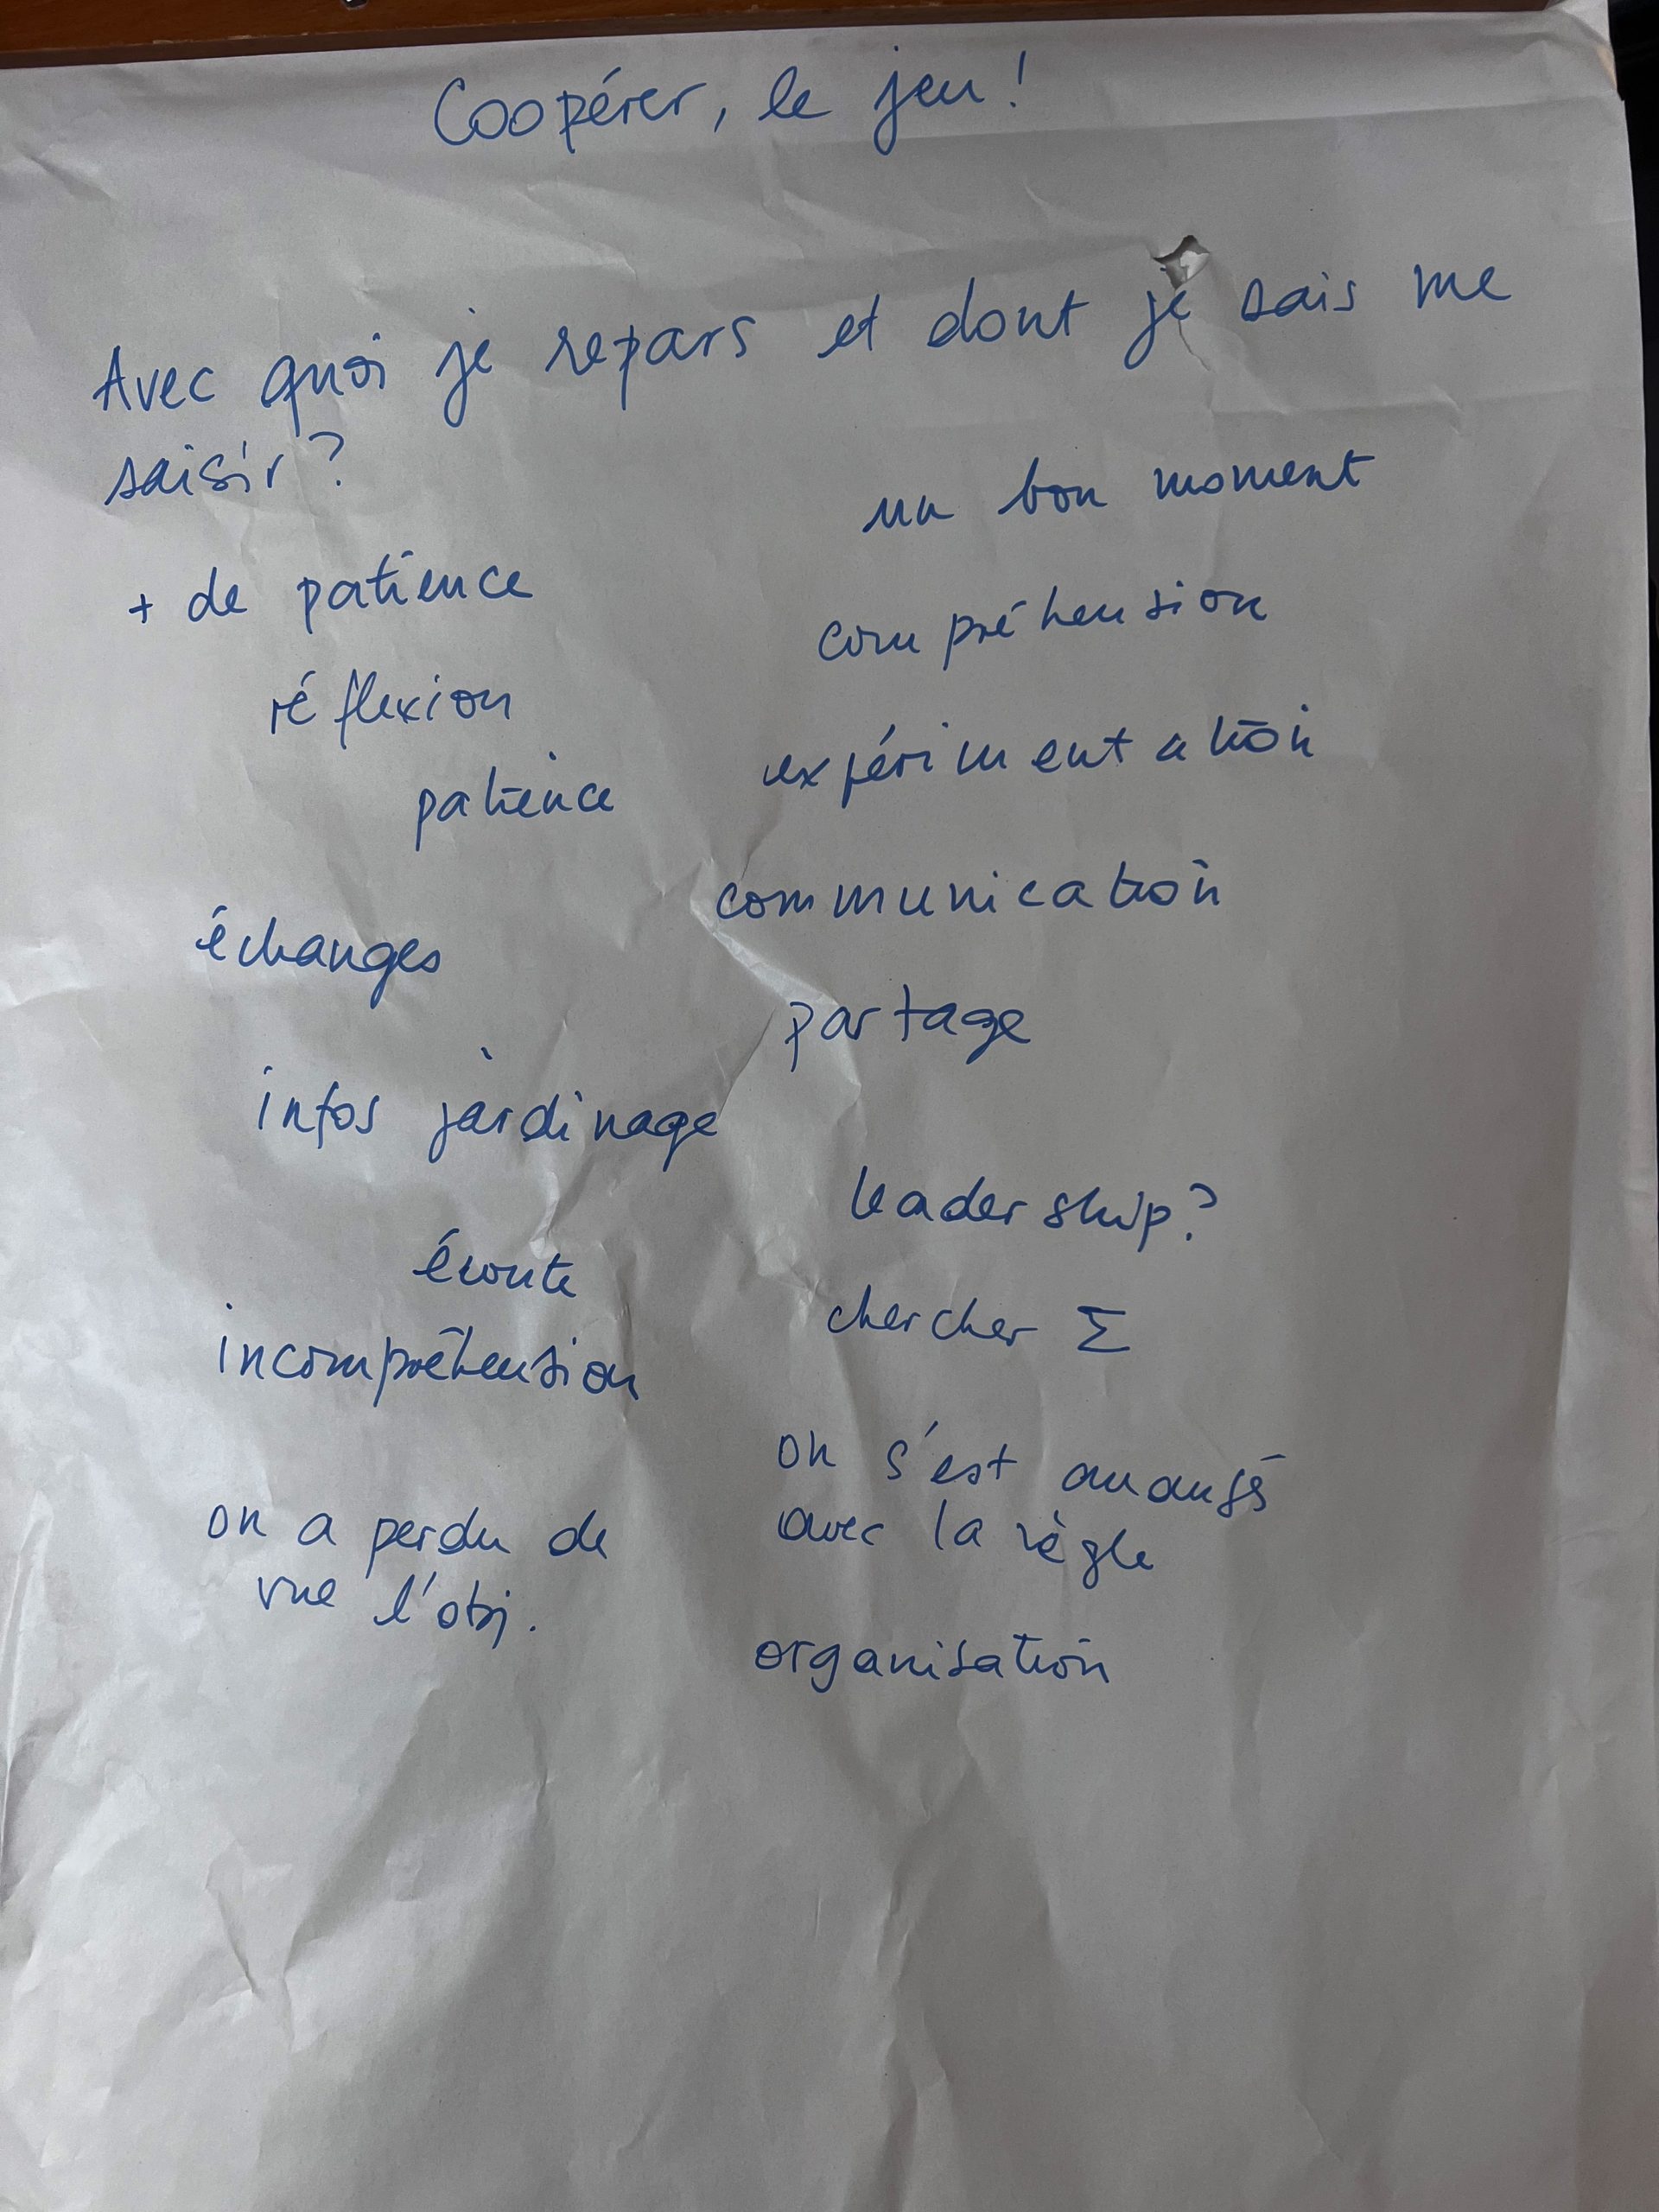 Coopérer, le jeu !
Avec quoi je repars et dont je sais me
saisir ?
un bon moment
+ de patience
compréhension
réflexion
expérimentation
patience
communication
échanges
partage
infos jardinage
leadership ?
écoute
chercher Σ
incompréhension
on s'est arrangés
avec la règle
on a perdu de
vue l'obj.
organisation